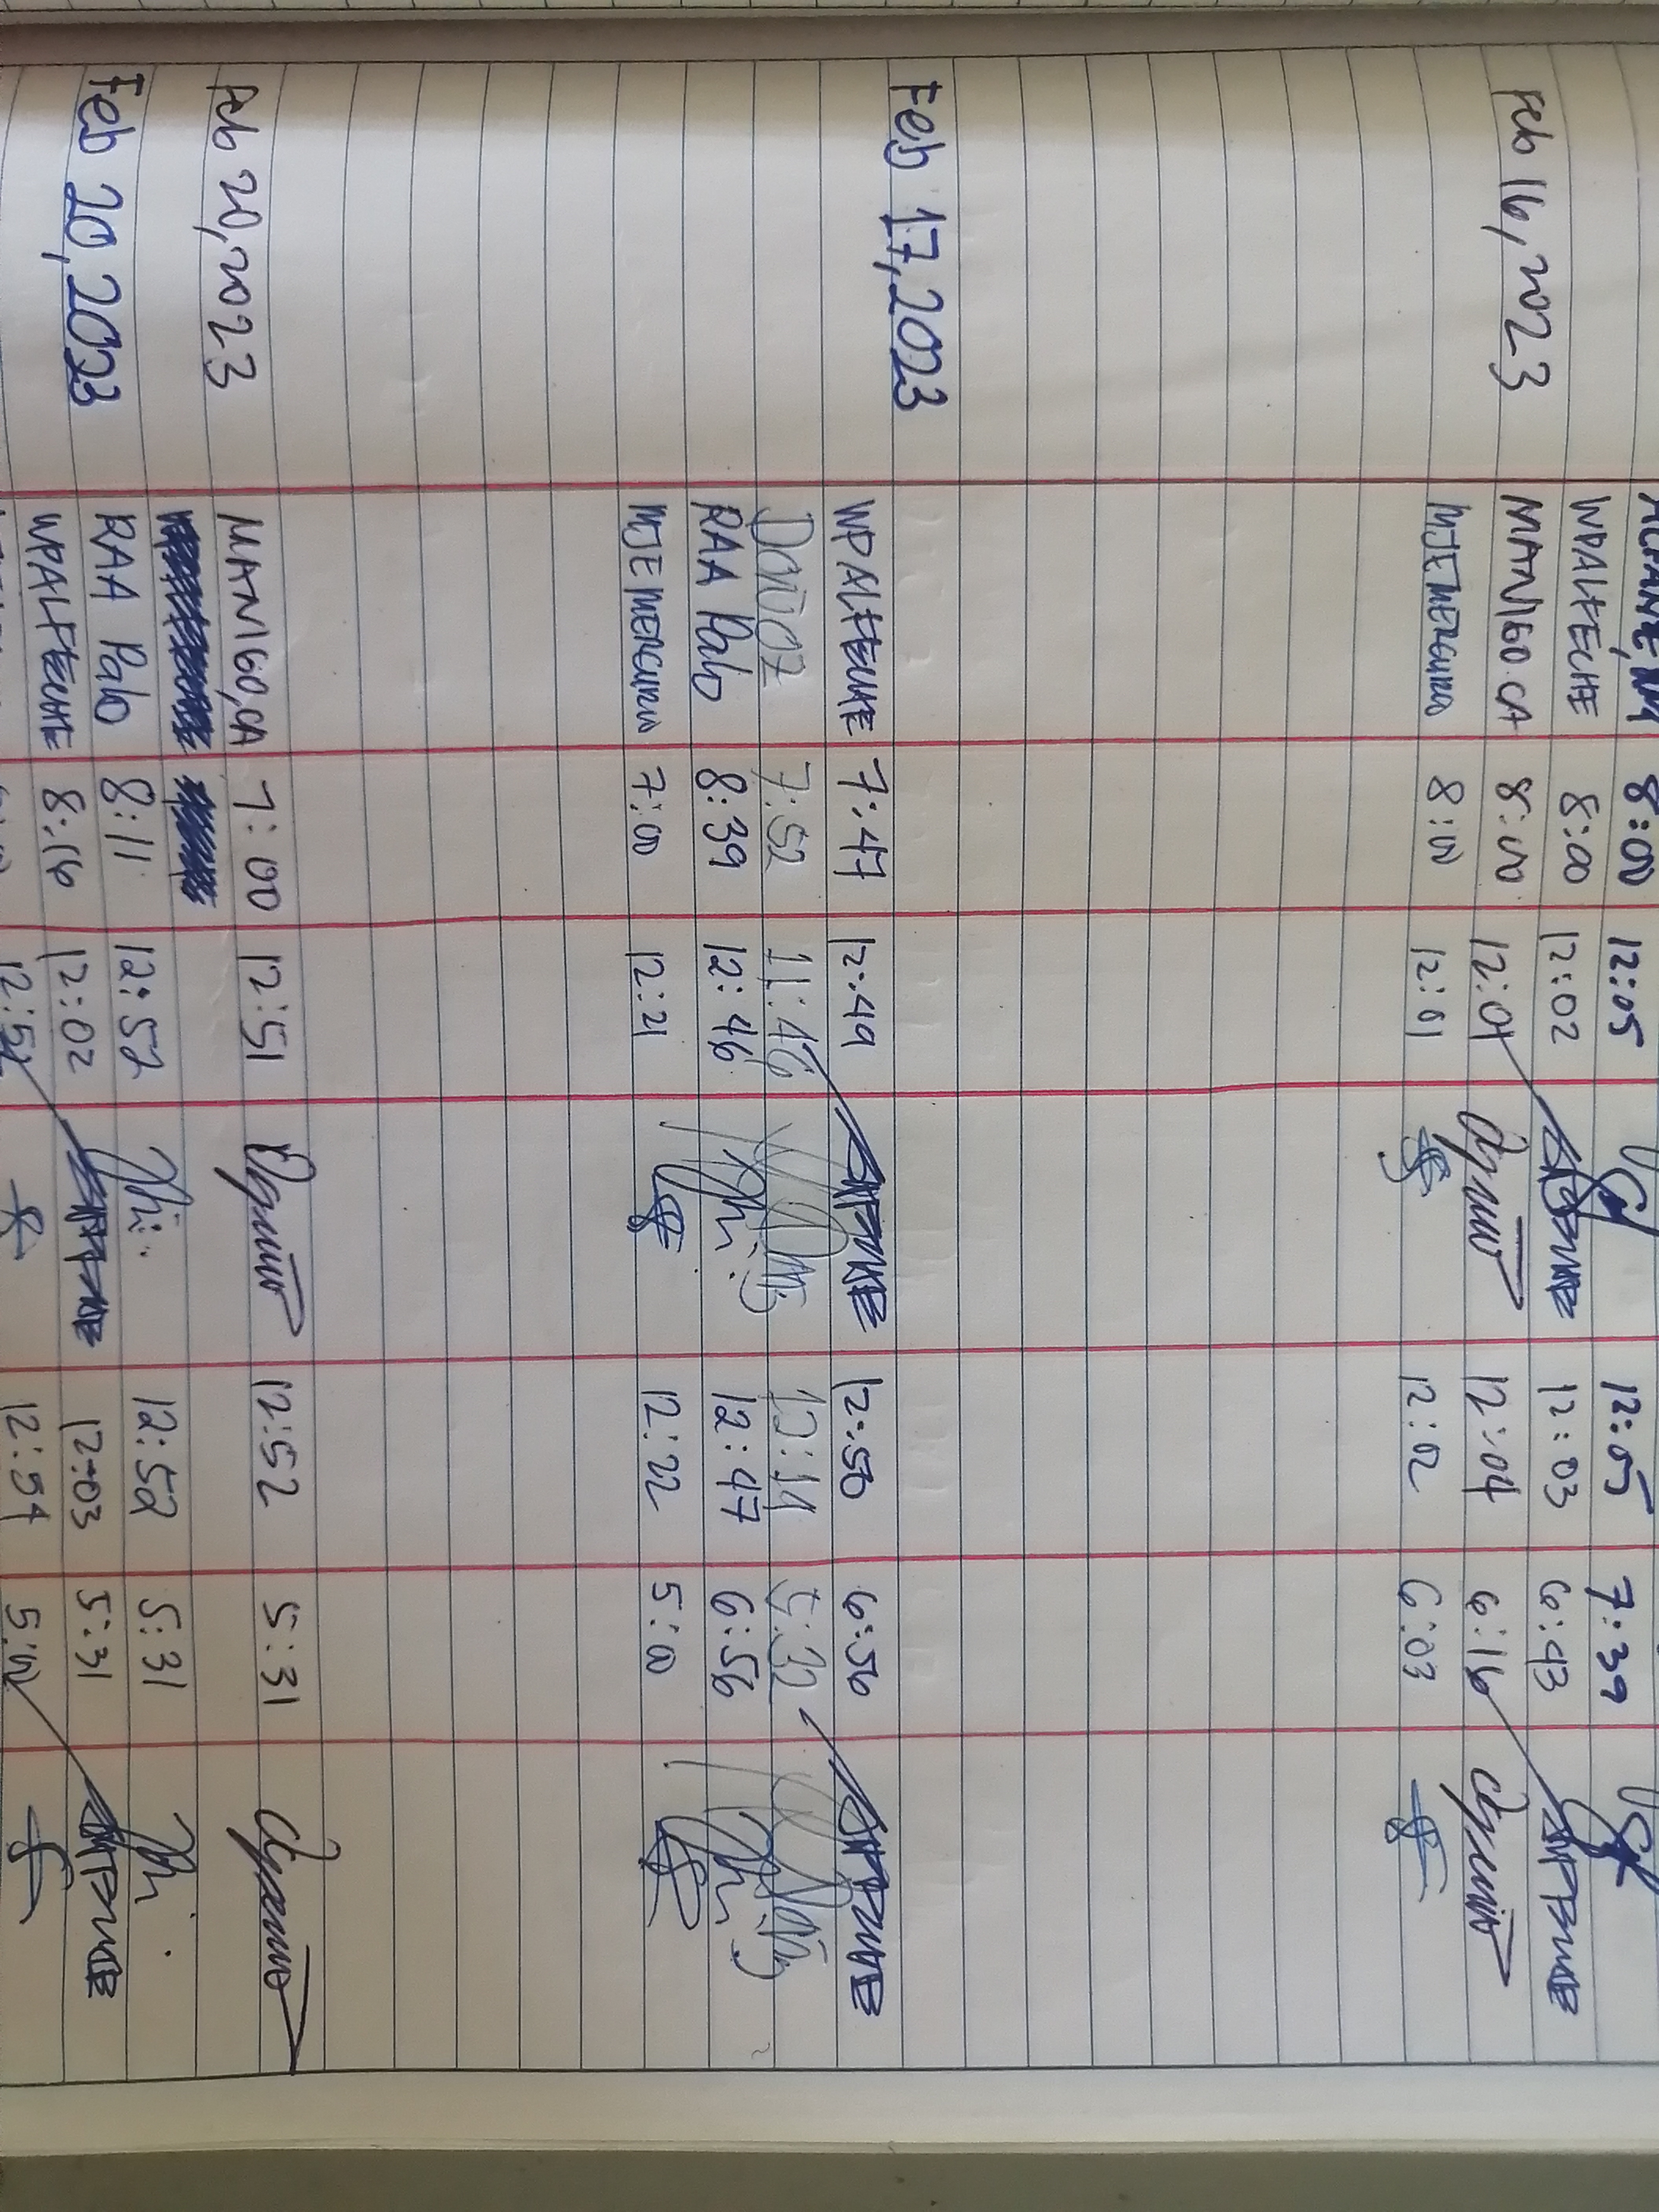 8:00 12:05 12:05 7:39
WPALFECHE 8:00 12:02 12:03 6:43
Feb 16, 2023 MANIGO CA 8:00 12:04 12:04 6:16
MJEMERCURIO 8:00 12:01 12:02 6:03
Feb 17, 2023
WPALFECHE 7:47 12:49 12:50 6:56
7:52 11:46 12:14 5:32
RAA Palo 8:39 12:46 12:47 6:56
MJEMERCURIO 7:00 12:21 12:22 5:00
Feb 20, 2023 MANIGO, CA 7:00 12:51 12:52 5:31
Feb 20, 2023 RAA Palo 8:11 12:52 12:52 5:31
WPALFECHE 8:16 12:02 12:03 5:31
12:54 5:00